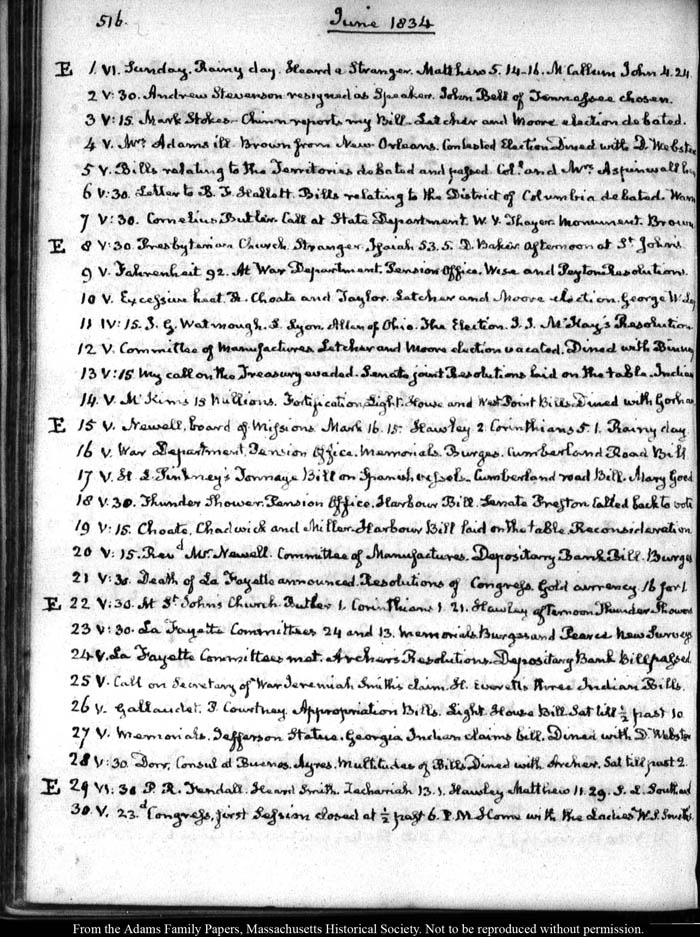 516.
June 1834
E 1 VI. Sunday. Rainy day. Heard a Stranger. Matthew 5. 14-16. McCallum John 4. 24
2 V: 30. Andrew Stevenson resigned as Speaker. John Bell of Tennessee chosen.
3 V: 15. Mark Stokes. Chinn reports my Bill. Letcher and Moore election debated.
4 V. Mrs Adams ill. Brown from New Orleans. Contested Election Dined with D. Webster
5 V. Bills relating to the Territories debated and passed. Coll. and Mrs Aspinwall
6 V: 30. Letter to B. F. Hallett. Bills relating to the District of Columbia debated. Warm
7 V: 30. Cornelius Butler. Call at State Department. W. V. Thayer. Monument. Brown
E 8 V: 30. Presbyterian Church. Stranger. Isaiah 53. 5. D. Baker afternoon at St. Johns.
9 V. Fahrenheit 92. At War Department. Pension Office. Wise and Peyton Resolutions.
10 V. Excessive heat. R. Choate and Taylor. Letcher and Moore election. George W.
11 IV: 15. J. G. Watmough. L. Lyon. Allen of Ohio. The Election. J. J. McKay's Resolution
12 V. Committee of Manufactures Letcher and Moore election vacated. Dined with Binney
13 V: 15 My call on the Treasury evaded. Senate joint Resolutions laid on the table. Indian
14. V. McKim's 13 Millions. Fortification, Light-House and West Point Bills. Dined with Gorham
E 15 V. Newell, board of Missions. Mark 16. 15. Hawley 2. Corinthians 5. 1. Rainy day
16 V. War Department, Pension Office. Memorials. Burges. Cumberland Road Bill
17 V. H. L. Pinkney's Tonnage Bill on Spanish vessels. Cumberland road Bill. Mary
18 V. 30. Thunder Shower. Pension Office. Harbour Bill. Senate Preston called back to vote
19 V: 15. Choate, Chadwick and Miller. Harbour Bill laid on the table. Reconsideration
20 V: 15. Revd. Mr Newell. Committee of Manufactures. Depositary Bank Bill. Burges
21 V: 30. Death of La Fayette announced. Resolutions of Congress. Gold currency. 16 for 1
E 22 V: 30. At St. Johns Church. Butler 1. Corinthians 1. 21. Hawley afternoon Thunder Showers
23 V: 30. La Fayette Committees 24 and 13. Memorials. Burges and Pearce New Surveys
24 V. La Fayette Committees met. Archer's Resolutions. Depositary Bank Bill passed
25 V. Call on Secretary of War Jeremiah Smith's claim. H. Everett's three Indian Bills.
26 V. Gallaudet. P. Courtney. Appropriation Bills. Light House Bill Sat till ½ past 10.
27 V. Memorials. Jefferson Statue. Georgia Indian claims bill. Dined with D. Webster
28 V: 30. Dorr, Consul at Buenos Ayres. Multitudes of Bills. Dined with Archer. Sat till past 2.
E 29 VI: 30 P. R. Fendall. Heard Smith. Zechariah 13. 1. Hawley Matthew 11. 29. S. L. Southard
30. V. 23.d Congress, first Session closed at ½ past 6. P.M. Home with the Ladies W. S. Smith's.
From the Adams Family Papers, Massachusetts Historical Society. Not to be reproduced without permission.